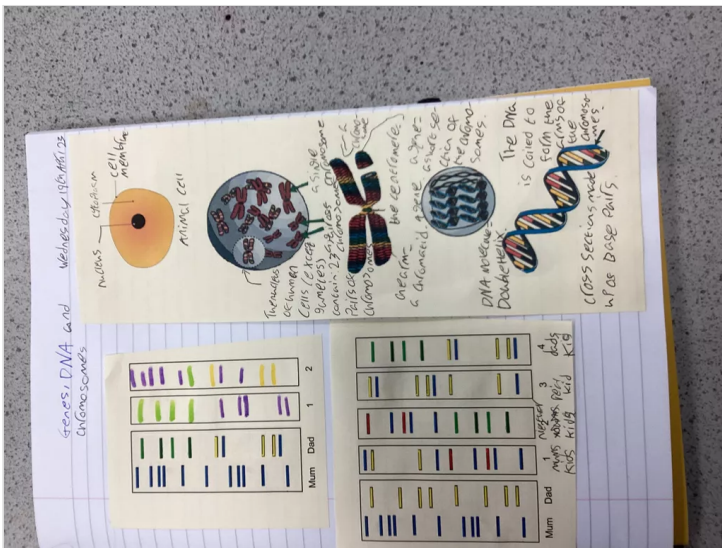 Genes, DNA and
chromosomes
Wednesday 19th April 23
nucleus
cytoplasm
cell
membrane
Animal cell
The nucleus
of human
cells (except
gametes)
contain 23
Pairs of
chromosomes
a single
chromosome
the centromere
one arm-
a chromatid
a gene
a short se-
ction of
the chromo-
somes.
DNA molecule-
Double helix
The DNA
is coiled to
form the
arms of
the
chromoso-
mes.
cross sections made
up as base pairs.
Mum Dad 1 2
Mum Dad 1 2 3 4
mums
kids
kids
kid
dads
kid